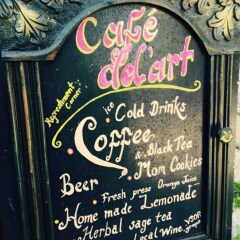 Café
del'art
Refreshment
Corner:
ice Cold Drinks
Coffee
& Black Tea
Mom Cookies
Beer
• Fresh press Orange Juice
• Home made Lemonade
Herbal sage tea
Local Wine